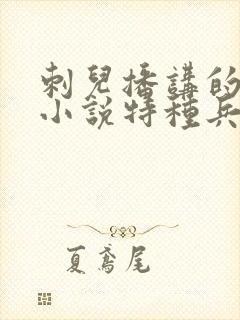 刺兒播講的
小說特種兵
夏鳶尾